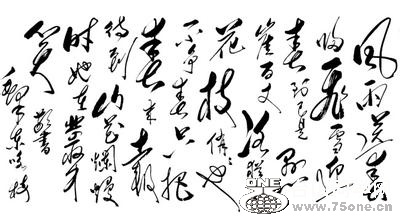 风雨送春
归飞雪迎
春到已是悬
崖百丈冰犹有
花枝俏俏也
不争春只把
春来报
待到山花烂熳
时她在丛中
笑 敬书
毛泽东咏梅
ONE
http://www.75one.cn